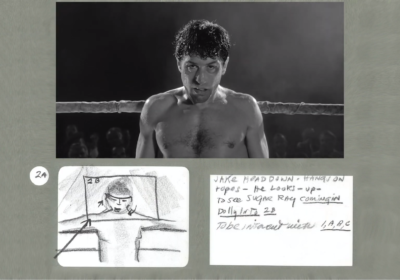 2A
2B
JAKE HEAD DOWN - HANDS ON
ropes - He LOOKS - up -
to see SUGAR RAY coming in
Dolly into 2B
To be intercut with 1, A, B, C